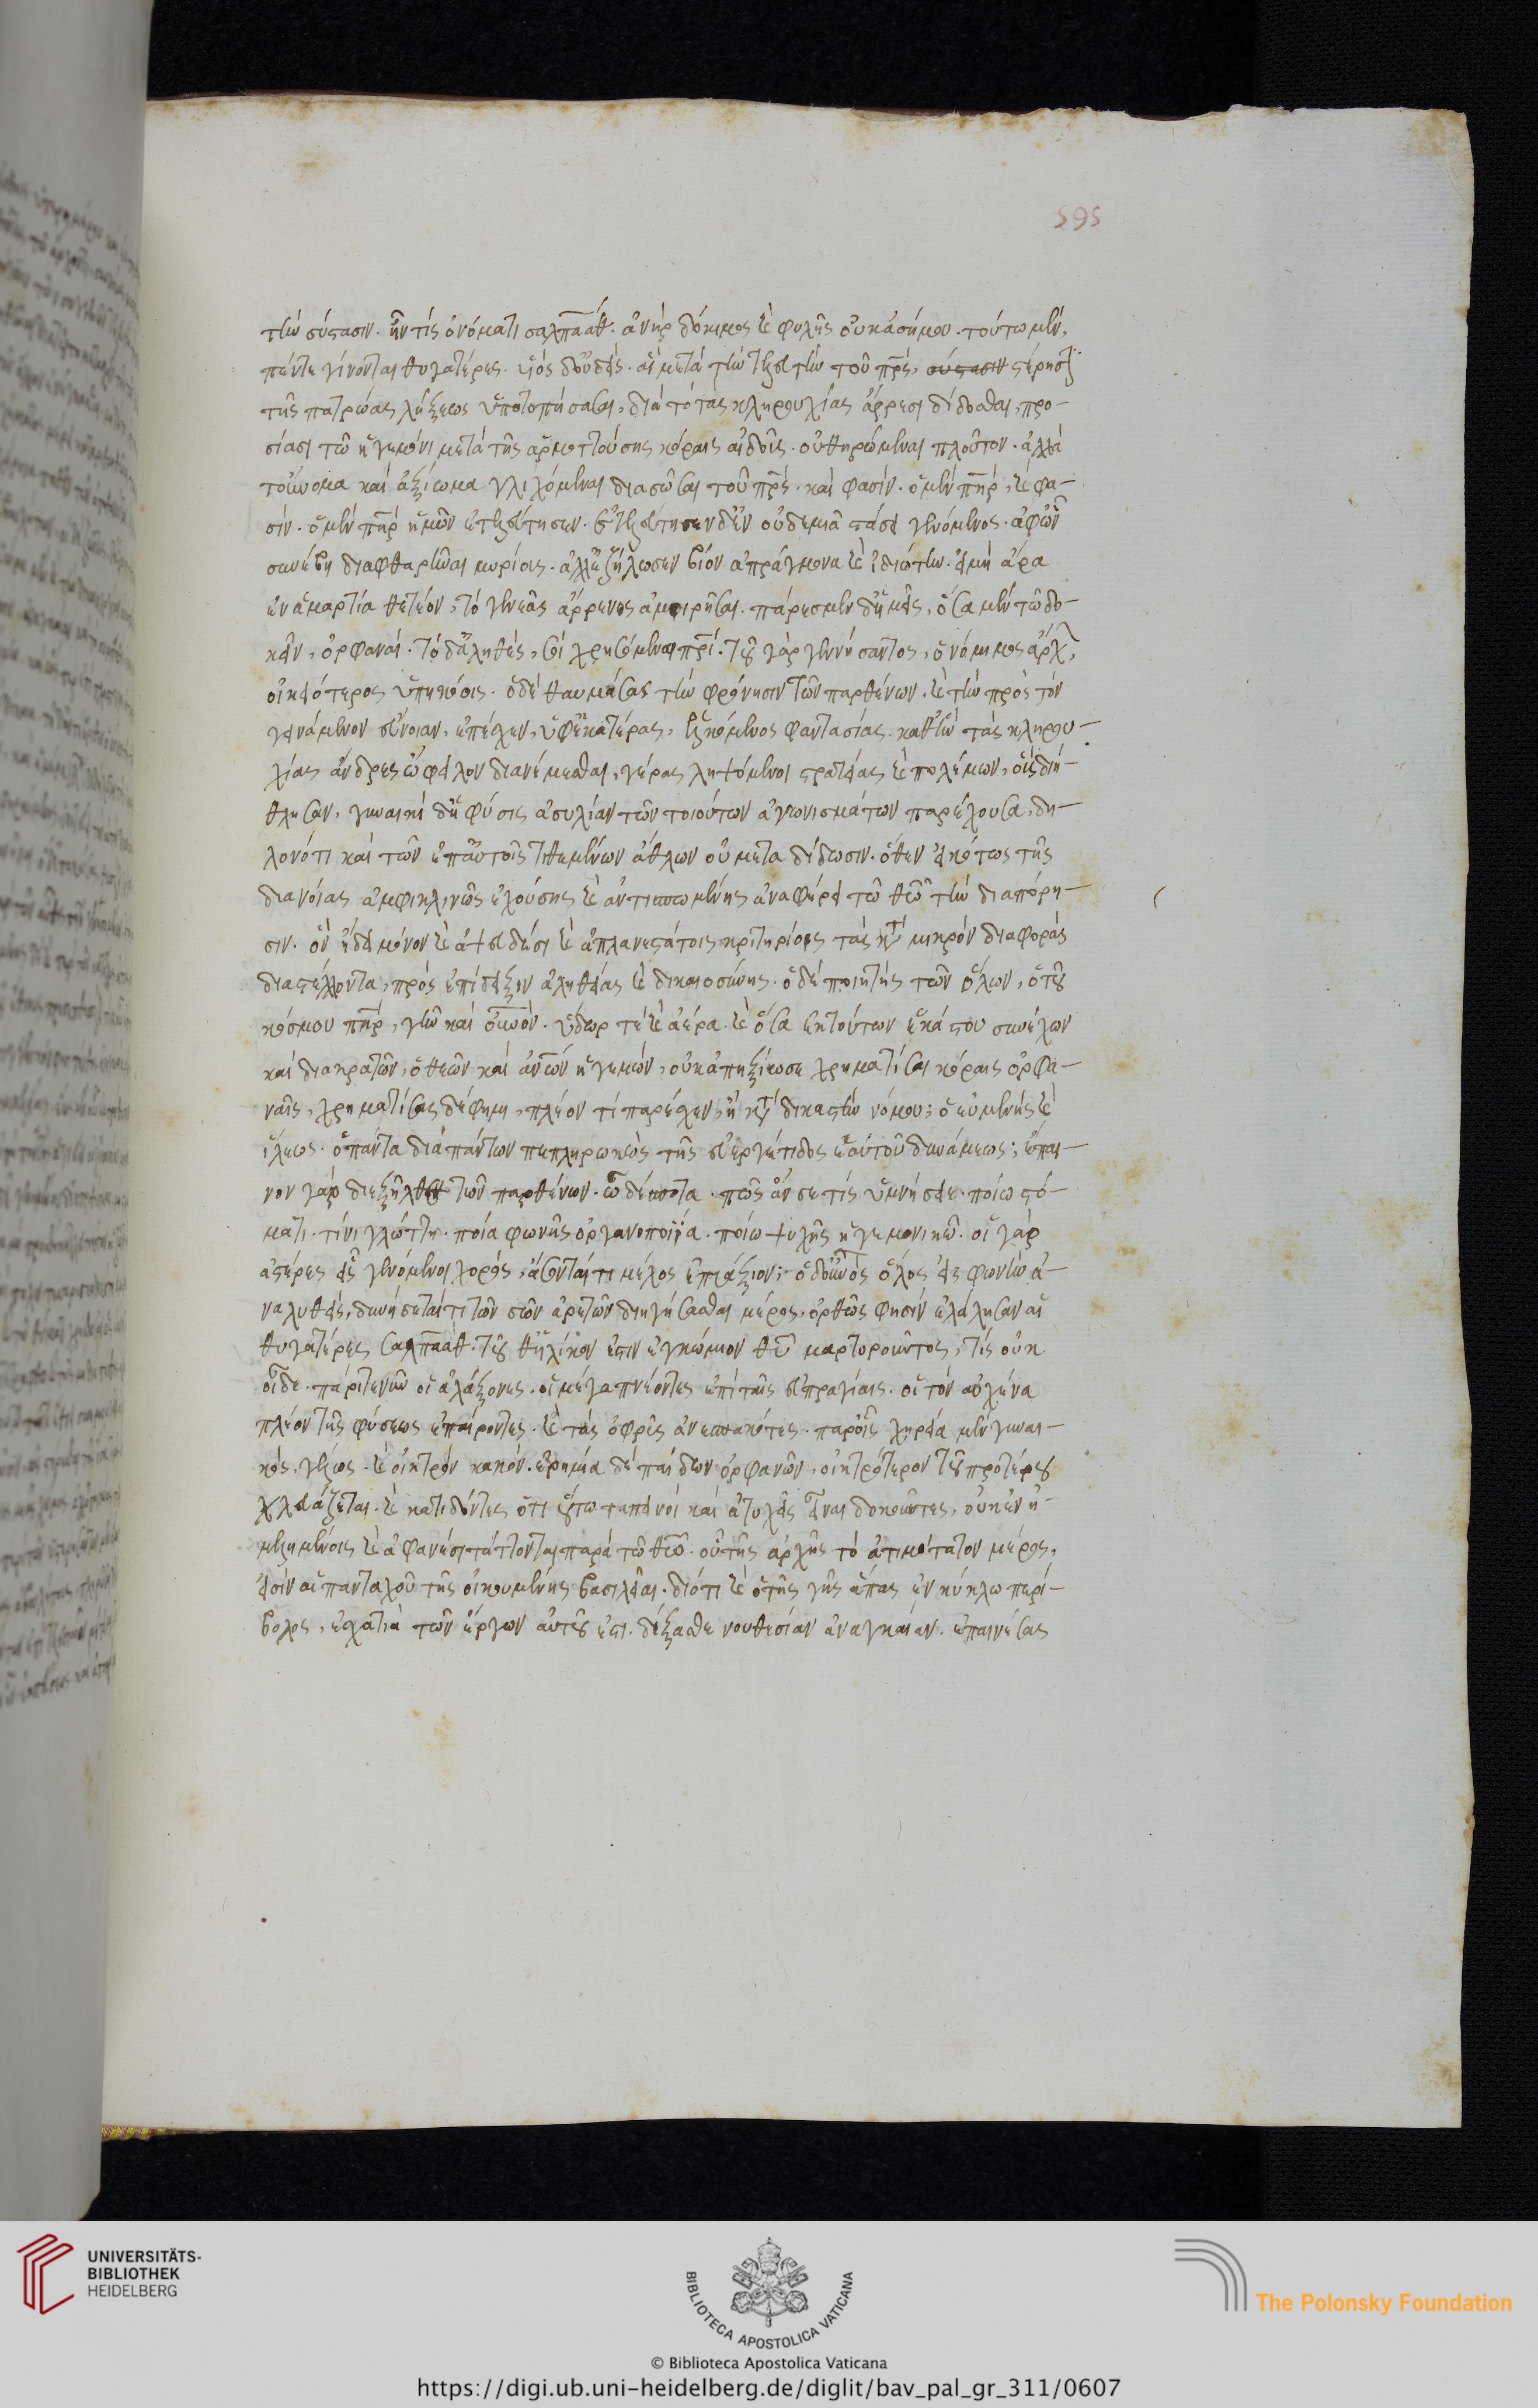 595
τὴν σύστασιν. ἦν τίς ὀνόματι σαλπαάθ. ἀνὴρ δόκιμος καὶ φυλῆς οὐκ ἀσήμου. τούτω μὲν,
πέντε γίνονται θυγατέρες. υἱὸς δ' οὐδείς. αἱ μετὰ τὴν τελευτὴν τοῦ πρς, σύστασιν στέρησιν
τῆς πατρώας λήξεως ὑποτοπήσασαι, διὰ τὸ τὰς κληρουχίας ἄρρεσι δίδοσθαι, προ-
σίασι τῶ ἡγεμόνι μετὰ τῆς ἁρμοττούσης κόραις αἰδοῦς. οὐ θηρώμεναι πλοῦτον. ἀλλὰ
τοὔνομα καὶ ἀξίωμα γλιχόμεναι διασῶσαι τοῦ πρς. καὶ φασίν. ὁ μὲν πηρ, καὶ φα-
σίν. ὁ μὲν πηρ ἡμῶν ἐτελεύτησεν. ἐτελεύτησεν δ' ἐν οὐδεμιᾶ στάσει γενόμενος. ἀφ' ὧν
συνέβη διαφθαρῆναι μυρίοις. ἀλλ' ἐζήλωσεν βίον ἀπράγμονα καὶ ἰδιώτην. εἰ μὴ ἄρα
ἐν ἁμαρτία θετέον, τὸ γενεᾶς ἄρρενος ἀμοιρῆσαι. πάρεσμεν δ' ἡμεῖς, ὅσα μὲν τῶ δο-
κεῖν, ὀρφαναί. τὸ δ' ἀληθές, σοὶ χρησόμεναι πρί. τοῦ γὰρ γεννήσαντος, ὁ νόμιμος ἄρχ,
οἰκειότερος ὑπηκόοις. ὁ δὲ θαυμάσας τὴν φρόνησιν τῶν παρθένων. καὶ τὴν πρὸς τὸν
γεινάμενον εὔνοιαν, ἐπέχει, ὑφ' ἑκατέρας, ἑλκόμενος φαντασίας. καθ' ἣν τὰς κληρου-
χίας ἄνδρες ὤφειλον διανέμεσθαι, γέρας ληψόμενοι στρατείας καὶ πολέμων, οὓς διή-
θλησαν, γυναικὶ δ' ἡ φύσις ἀσυλίαν τῶν τοιούτων ἀγωνισμάτων παρέχουσα, δη-
λονότι καὶ τῶν ἐπ' αὐτοῖς τιθεμένων ἄθλων οὐ μεταδίδωσιν. ὅθεν εἰκότως τῆς
διανοίας ἀμφικλινῶς ἐχούσης καὶ ἀντισπωμένης ἀναφέρει τῶ θεῶ τὴν διαπόρη-
σιν. ὃν ᾔδει μόνον καὶ ἀψευδέσι καὶ ἀπλανεστάτοις κριτηρίοις τὰς κατὰ μικρὸν διαφορὰς
διαστέλλοντα, πρὸς ἐπίδειξιν ἀληθείας καὶ δικαιοσύνης. ὁ δὲ ποιητὴς τῶν ὅλων, ὁ τοῦ
κόσμου πηρ, γῆν καὶ οὐνόν. ὕδωρ τὲ καὶ ἀέρα. καὶ ὅσα ἐκ τούτων ἑκάστου συνέχων
καὶ διακρατῶν, ὁ θεῶν καὶ ἀνων ἡγεμών, οὐκ ἀπηξίωσε χρηματίσαι κόραις ὀρφα-
ναῖς, χρηματίσας δέ φημι, πλέον τί παρέχεν, ἢ κατὰ δικαστὴν νόμου; ὁ εὐμενὴς καὶ
ἵλεως. ὁ πάντα διὰ πάντων πεπληρωκὼς τῆς εὐεργέτιδος ἑαυτοῦ δυνάμεως; ἔπαι-
νον γὰρ διεξῆλθε τῶν παρθένων. ὦ δέσποτα. πῶς ἄν σε τίς ὑμνήσειε. ποίω στό-
ματι. τίνι γλώττη. ποία φωνῆς ὀργανοποιΐα. ποίω ψυχῆς ἡγεμονικῶ. οἱ γὰρ
ἀστέρες εἷς γενόμενοι χορὸς, ἄσονταί τι μέλος ἐπάξιον; ὁ δ' οὐνὸς ὅλος εἰς φωνὴν ἀ-
ναλυθείς, δυνήσεταί τι τῶν σῶν ἀρετῶν διηγήσασθαι μέρος. ὀρθῶς φησὶν ἐλάλησαν αἱ
θυγατέρες σαλπαάθ. τοῦθ' ἡλίκον ἐστὶν ἐγκώμιον θεοῦ μαρτυροῦντος, τίς οὐκ
οἶδε. πάριτε νῦν οἱ ἀλάζονες. οἱ μέγα πνέοντες ἐπὶ ταῖς εὐπραγίαις. οἱ τὸν αὐχένα
πλέον τῆς φύσεως ἐπαίροντες. καὶ τὰς ὀφρῦς ἀνεσπακότες. παρ' οἷς χηρεία μὲν γυναι-
κὸς, γέλως. καὶ οἰκτρὸν κακόν. ἐρημία δὲ παίδων ὀρφανῶν, οἰκτρότερον τοῦ προτέρου
χλευάζεται. καὶ κατιδόντες ὅτι οὕτω ταπεινοὶ καὶ ἀτυχεῖς εἶναι δοκοῦντες, οὐκ ἐν ἠ-
μελημένοις καὶ ἀφανέσι τάττονται παρὰ τῶ θεῶ. οὗ τῆς ἀρχῆς τὸ ἀτιμότατον μέρος,
εἰσὶν αἱ πανταχοῦ τῆς οἰκουμένης βασιλεῖαι. διότι καὶ ὁ τῆς γῆς ἅπας ἐν κύκλω περί-
βολος, ἐσχατιὰ τῶν ἔργων αὐτοῦ ἐστι. δέξασθε νουθεσίαν ἀναγκαίαν. ἐπαινέσας
UNIVERSITÄTS-
BIBLIOTHEK
HEIDELBERG
BIBLIOTECA APOSTOLICA VATICANA
The Polonsky Foundation
© Biblioteca Apostolica Vaticana
https://digi.ub.uni-heidelberg.de/diglit/bav_pal_gr_311/0607